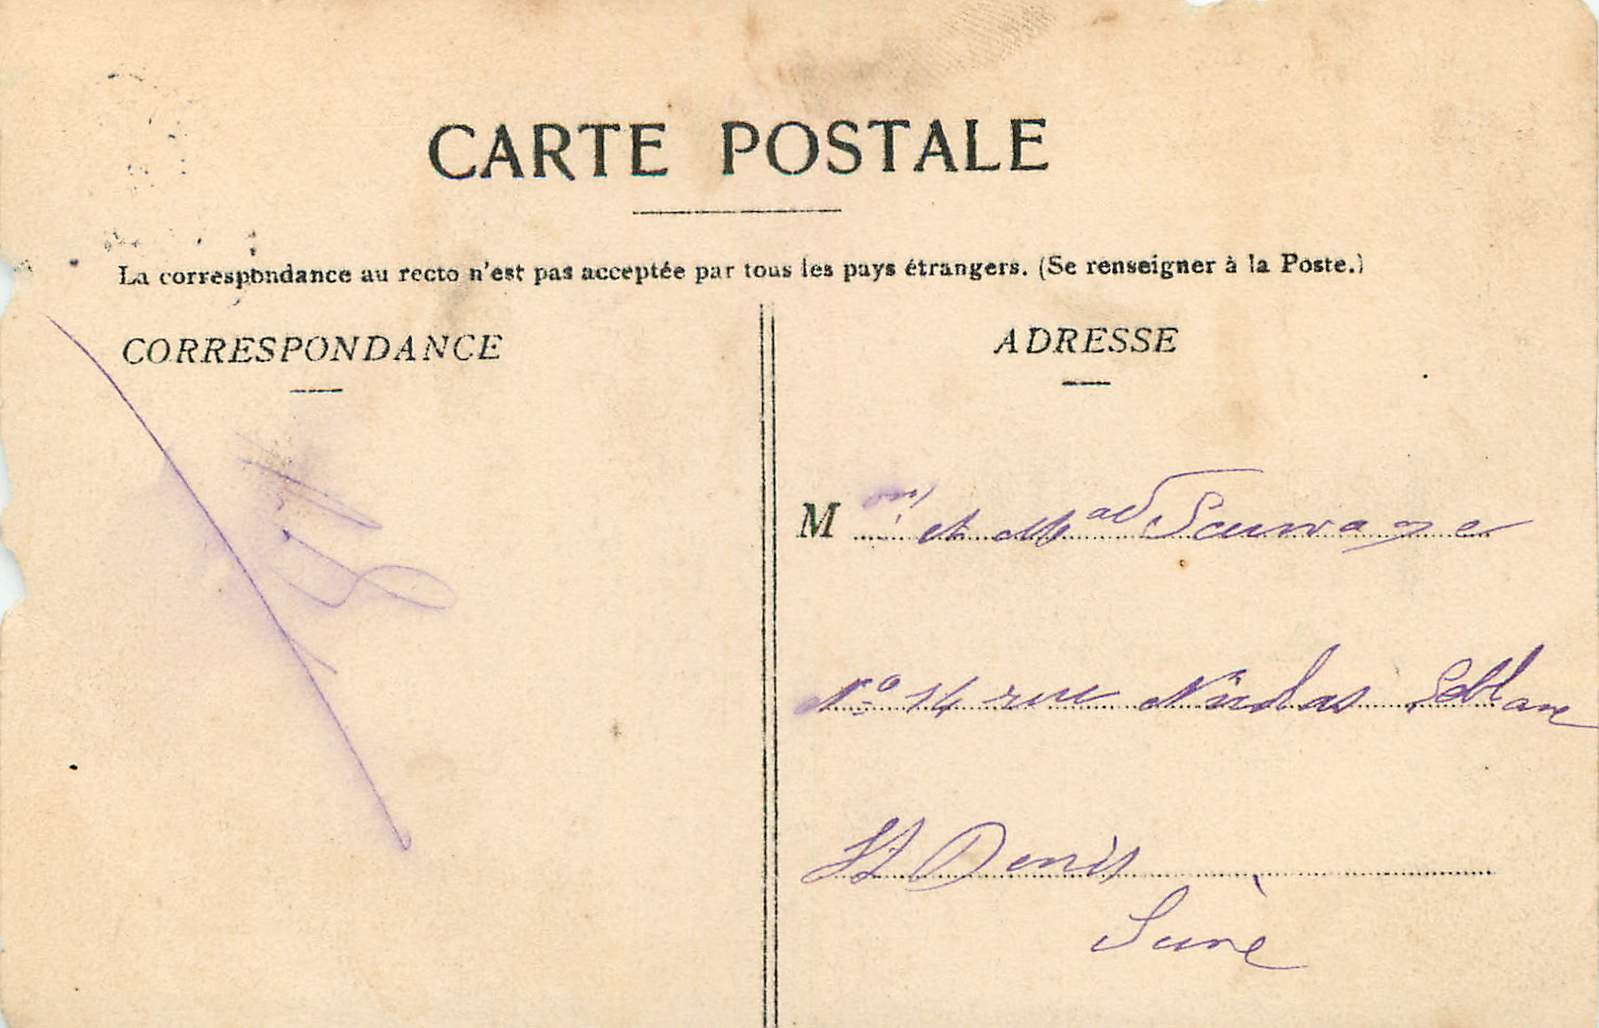 CARTE POSTALE
La correspondance au recto n'est pas acceptée par tous les pays étrangers. (Se renseigner à la Poste.)
CORRESPONDANCE
ADRESSE
M et Mad Sauvage
No 14 rue Nicolas Leblanc
St Denis
Seine